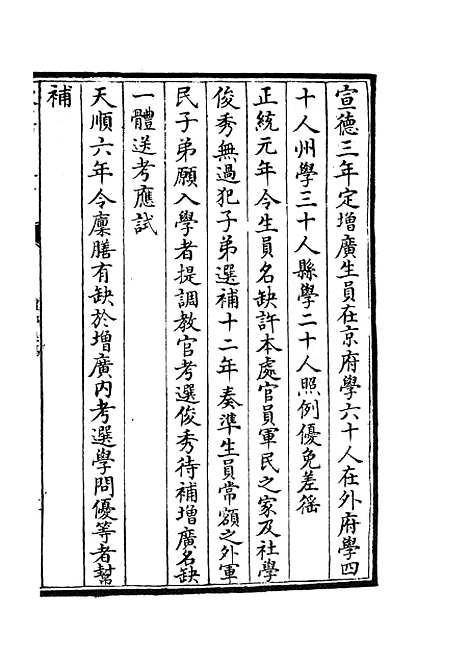 宣德三年定增廣生員在京府學六十人在外府學四
十人州學三十人縣學二十人照例優免差徭
正統元年令生員名缺許本處官員軍民之家及社學
俊秀無過犯子弟選補十二年奏準生員常額之外軍
民子弟願入學者提調教官考選俊秀待補增廣名缺
一體送考應試
天順六年令廩膳有缺於增廣內考選學問優等者幫
補